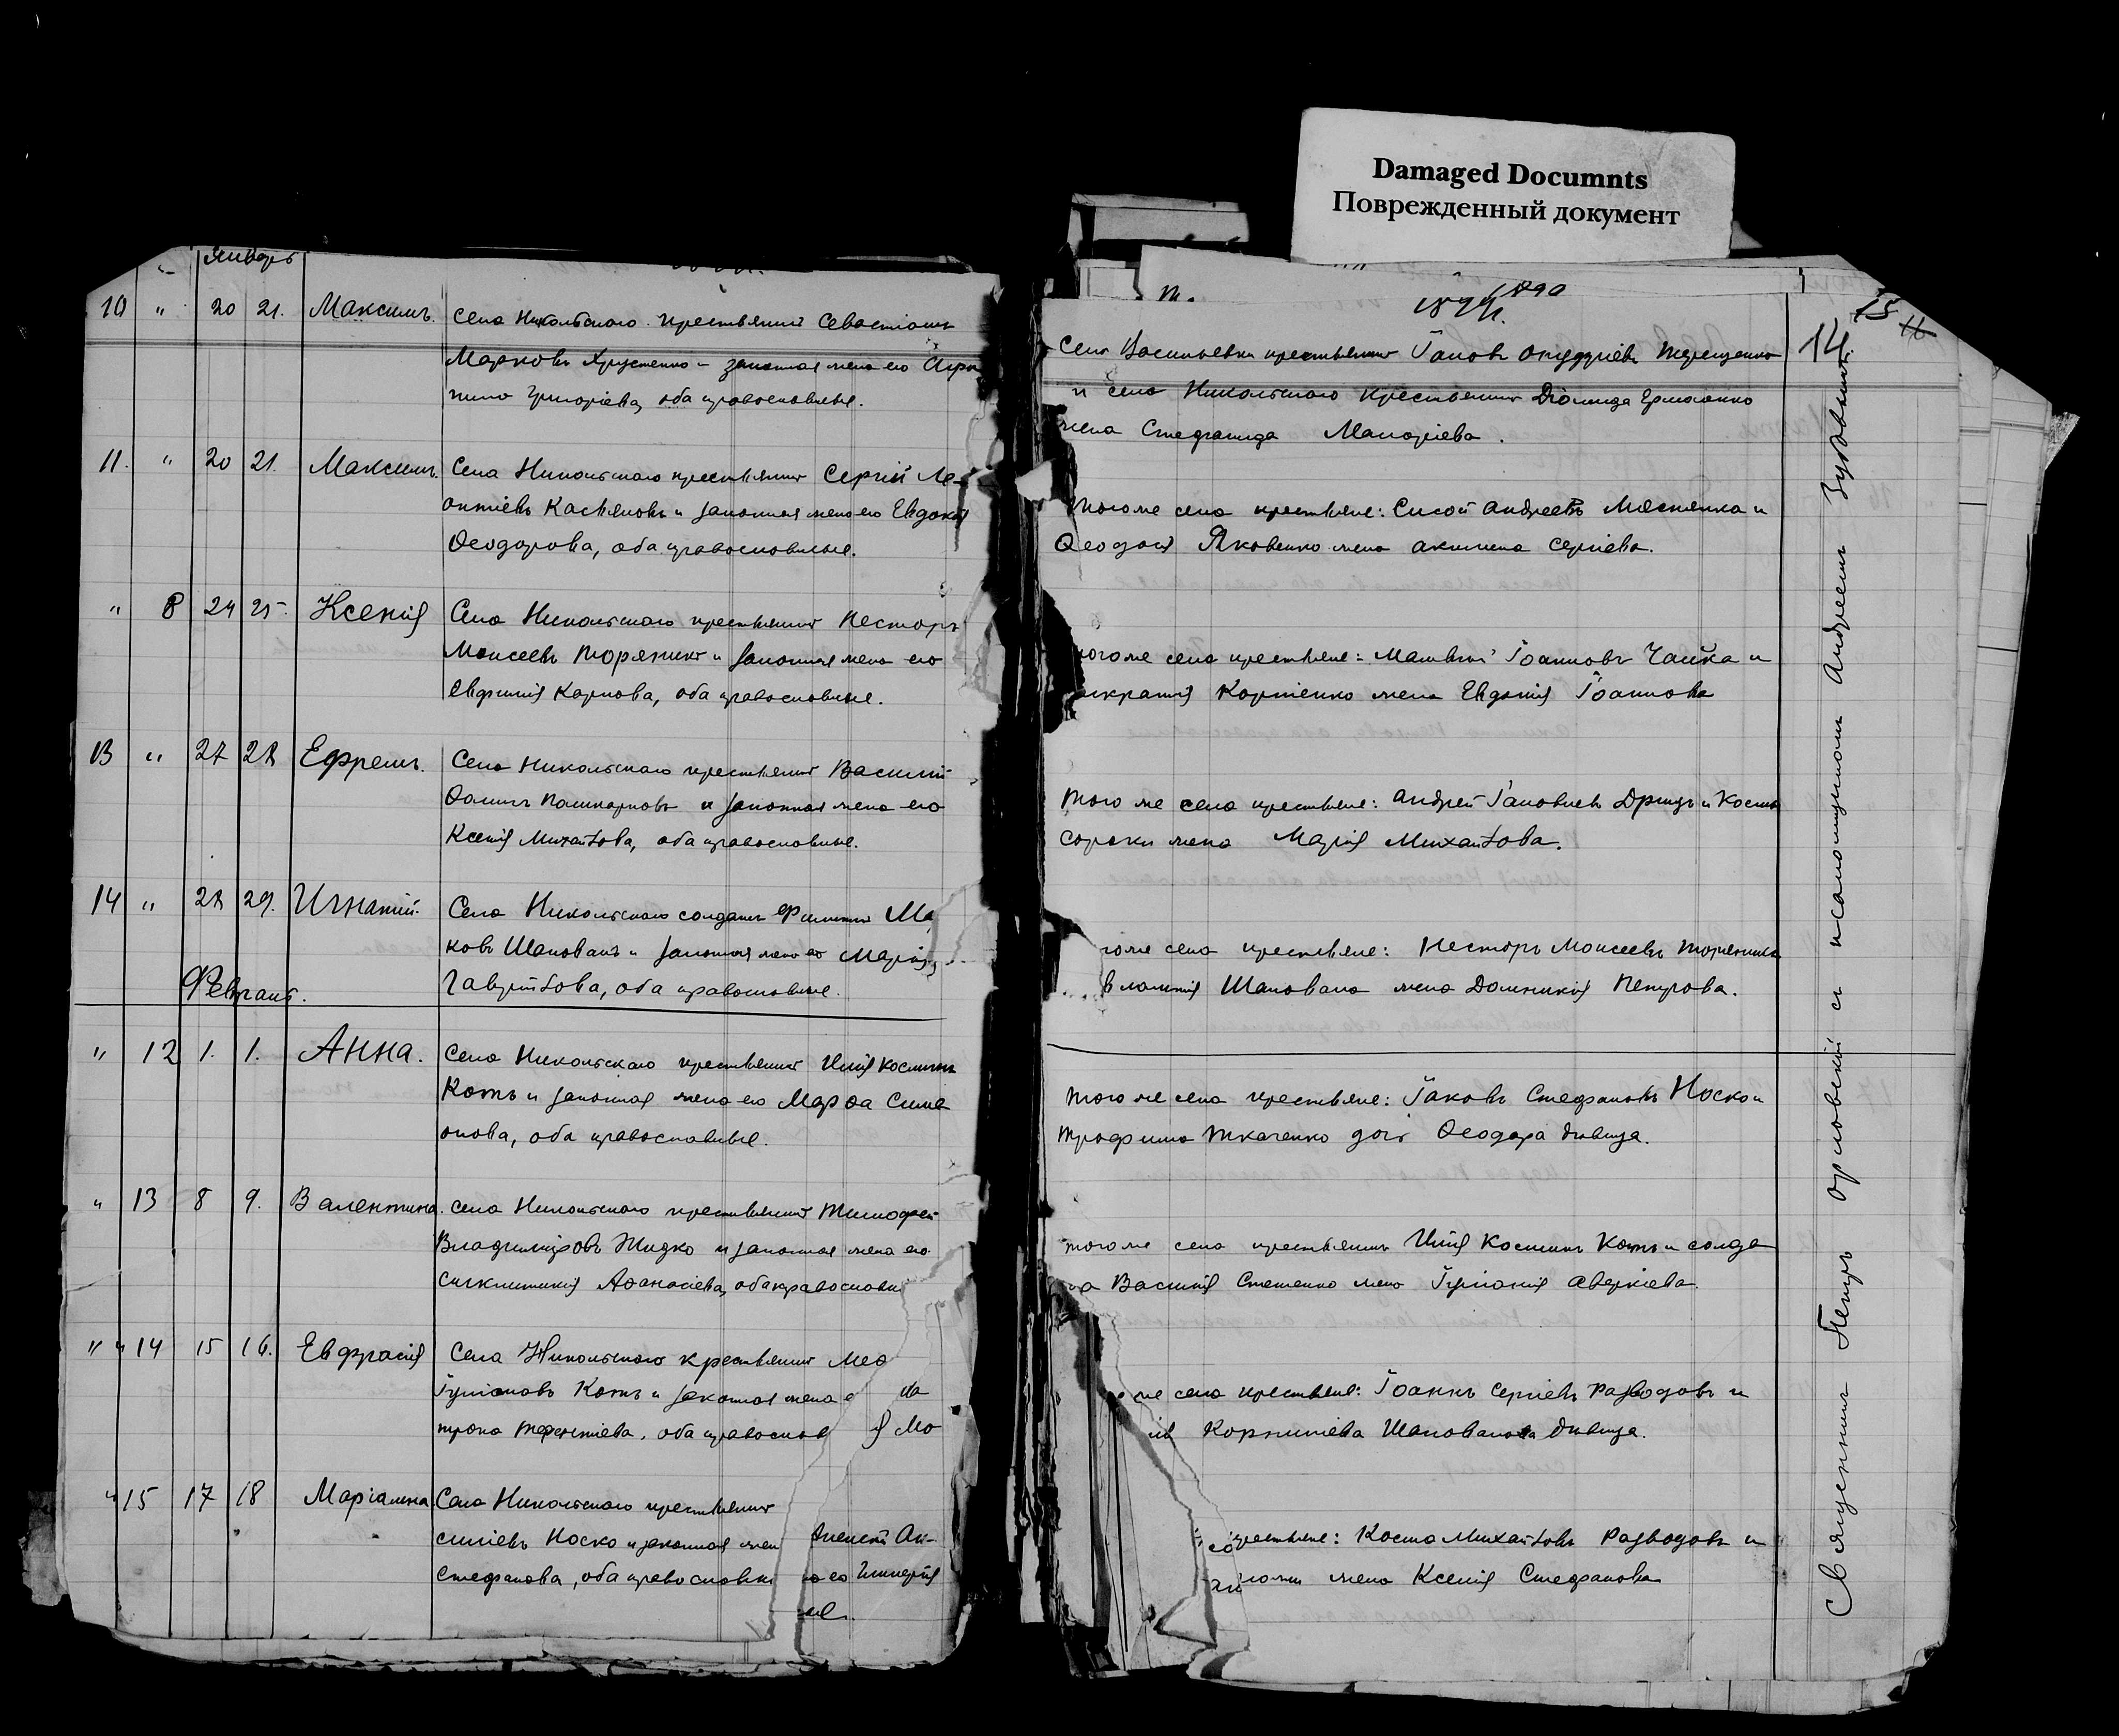 Damaged Documnts
Поврежденный документ
Январь
10 " 20 21. Максимъ. Села Никольскаго крестьянинъ Севастіанъ
Марковъ и законная жена его Агри
пина Григоріева, оба православные.
11. " 20 21. Максимъ. Села Никольскаго крестьянинъ Сергій Ле-
онтіевъ Касьяновъ и законная жена его Евдокія
Ѳеодорова, оба православные.
" 8 24 25 Ксенія Села Никольскаго крестьянинъ Несторъ
Моисеевъ и законная жена его
Евфимія Карпова, оба православные.
13 " 27 28 Ефремъ. Села Никольскаго крестьянинъ Василій
Ѳоминъ и законная жена его
Ксенія Михайлова, оба православные.
14 " 28 29. Игнатій. Села Никольскаго солдатъ Филиппъ Ма
ковъ Шаповалъ и законная жена его Марія
Гавріилова, оба православные.
Февраль.
" 12 1. 1. Анна. Села Никольскаго крестьянинъ Илія Косминъ
Котъ и законная жена его Марѳа Симе
онова, оба православные.
" 13 8 9. Валентина. Села Никольскаго крестьянинъ Тимофей
Владиміровъ Жидко и законная жена его
Синклитикія Аѳанасіева, оба православн
" " 14 15 16. Евфрасія Села Никольскаго крестьянинъ Мео
Іуліановъ Котъ и законная жена е на
трона Терентіева, оба православ я Мо
" 15 17 18 Маріамна. Села Никольскаго крестьянинъ
силіевъ Носко и законная жен Алексѣй Ак-
Стефанова, оба православн на его Гликерія
ые.
1890
14 15 11
Села Васильевки крестьянинъ Іаковъ Терещенко
и села Никольскаго крестьянина Діомида Ермоленко
жена Стефанида Макаріева.
Того же села крестьяне: Сисой Андреевъ и
Ѳеодосія Яковенко жена Акилина Сергіева.
того же села крестьяне: Матвѣй Іоанновъ Чайка и
анкратія Корніенко жена Евдокія Іоаннова
Того же села крестьяне: Андрей Іаковлевъ и Космы
Сороки жена Марія Михайлова.
гоже села крестьяне: Несторъ Моисеевъ
Шаповала жена Домникія Петрова.
Того же села крестьяне: Іаковъ Стефановъ Носко и
Трофима Ткаченко дочь Ѳеодора дѣвица.
того же села крестьянинъ Илія Косминъ Котъ и солда
та Василія Стеценко жена Іуліанія Аверкіева.
же села крестьяне: Іоаннъ Сергіевъ Разводовъ и
Корниліева Шаповалова дѣвица.
крестьяне: Косма Михайловъ Разводовъ и
жена Ксенія Стефанова
Священникъ Петръ Орловскій съ псаломщикомъ Андреемъ